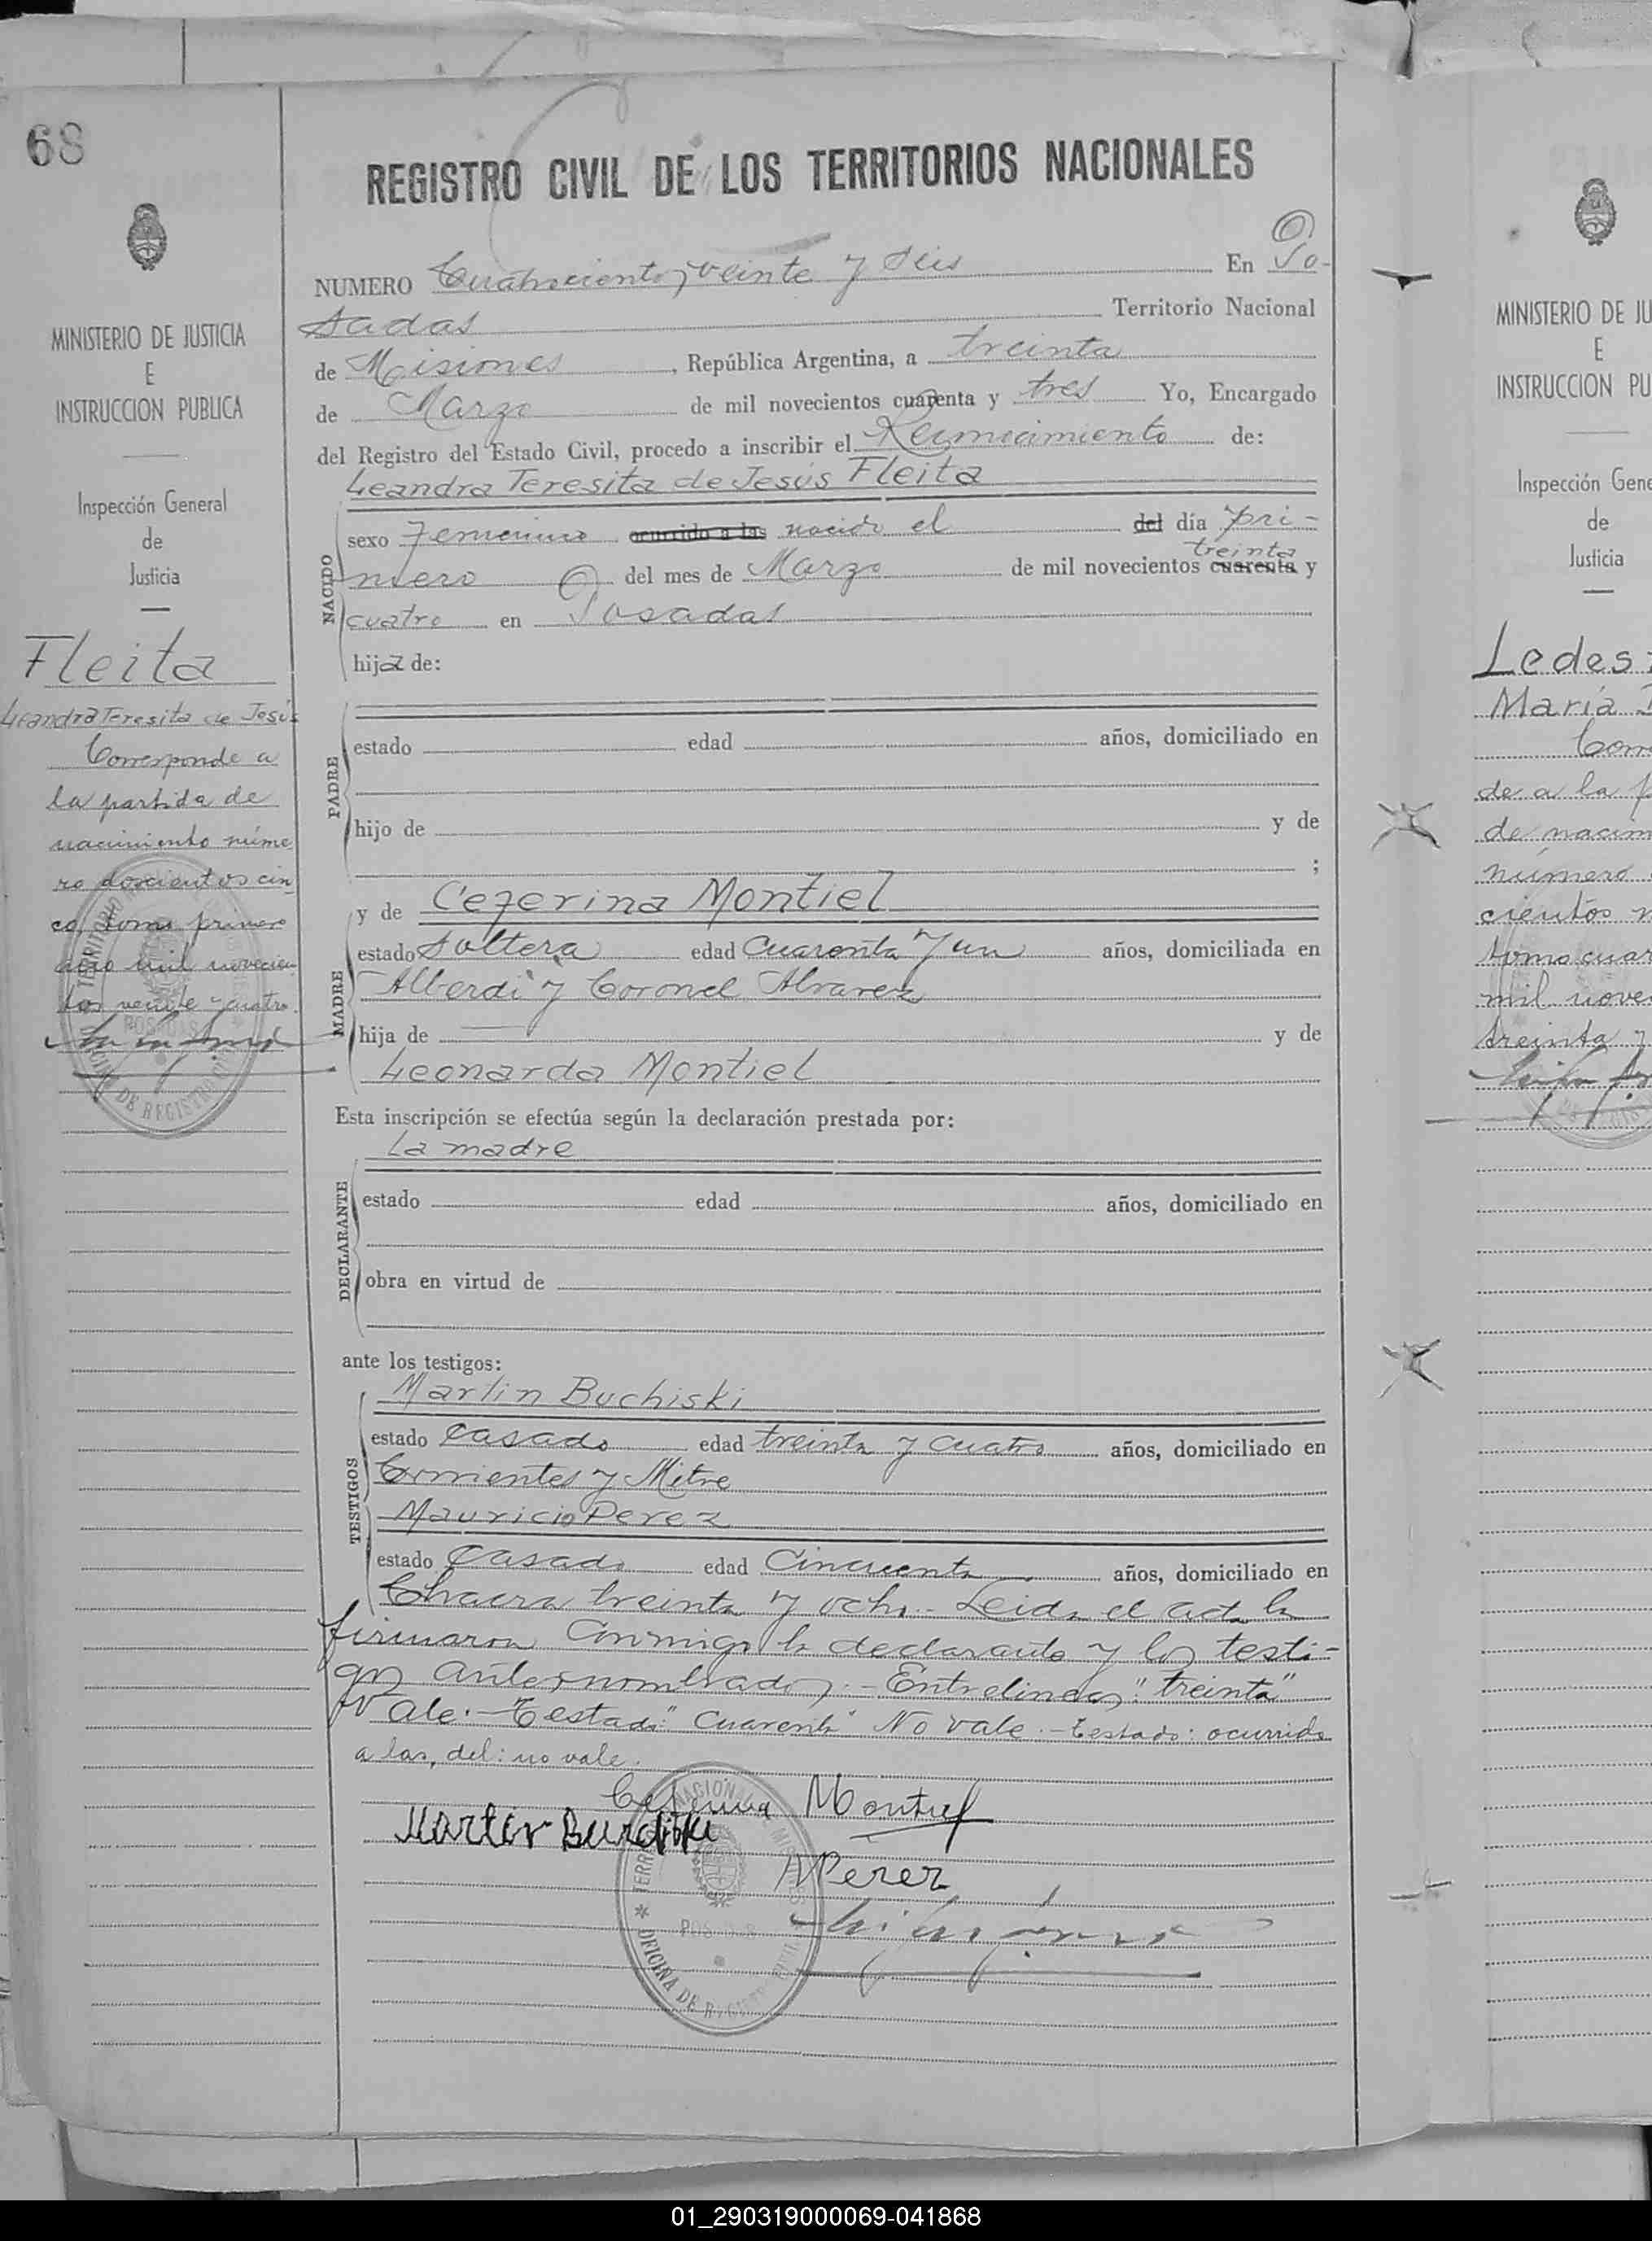 68
MINISTERIO DE JUSTICIA
E
INSTRUCCION PUBLICA
Inspección General
de
Justicia
Fleita
Leandra Teresita de Jesús
Corresponde a
la partida de
nacimiento núme
ro doscientos cin
co, tomo primero
año mil novecien
tos veinte y cuatro.
REGISTRO CIVIL DE LOS TERRITORIOS NACIONALES
NUMERO Cuatrociento y veinte y seis En Po-
sadas Territorio Nacional
de Misiones, República Argentina, a treinta
de Marzo de mil novecientos cuarenta y tres Yo, Encargado
del Registro del Estado Civil, procedo a inscribir el Reconocimiento de:
Leandra Teresita de Jesús Fleita
NACIDO
sexo Femenino ocurrido a las nacido el del día pri-
treinta
mero del mes de Marzo de mil novecientos cuarenta y
cuatro en Posadas
hija de:
PADRE
estado edad años, domiciliado en
hijo de y de
;
MADRE
y de Ceferina Montiel
estado Soltera edad Cuarenta y un años, domiciliada en
Alberdi y Coronel Alvarez
hija de — y de
Leonarda Montiel
Esta inscripción se efectúa según la declaración prestada por:
La madre
DECLARANTE
estado edad años, domiciliado en
obra en virtud de
ante los testigos:
TESTIGOS
Martin Buchiski
estado Casado edad treinta y cuatro años, domiciliado en
Corrientes y Mitre
Mauricio Perez
estado Casado edad Cincuenta años, domiciliado en
Chacra treinta y ocho.- Leida el acta la
firmaron conmigo la declarante y los testi-
gos antes nombrados.- Entrelineas: "treinta"
Vale.- Testado "cuarenta" No vale.- Testado: ocurrido
a las, del: no vale.
Ceferina Montiel
Martin
MPerez
TERRITORIO NACIONAL DE MISIONES
POSADAS
OFICINA DE REGISTRO CIVIL
MINISTERIO DE JU
E
INSTRUCCION PU
Inspección Gene
de
Justicia
Ledes
María
Corr
de a la p
de nacim
número
cientos
tomo cuar
mil nove
treinta y
01_290319000069-041868